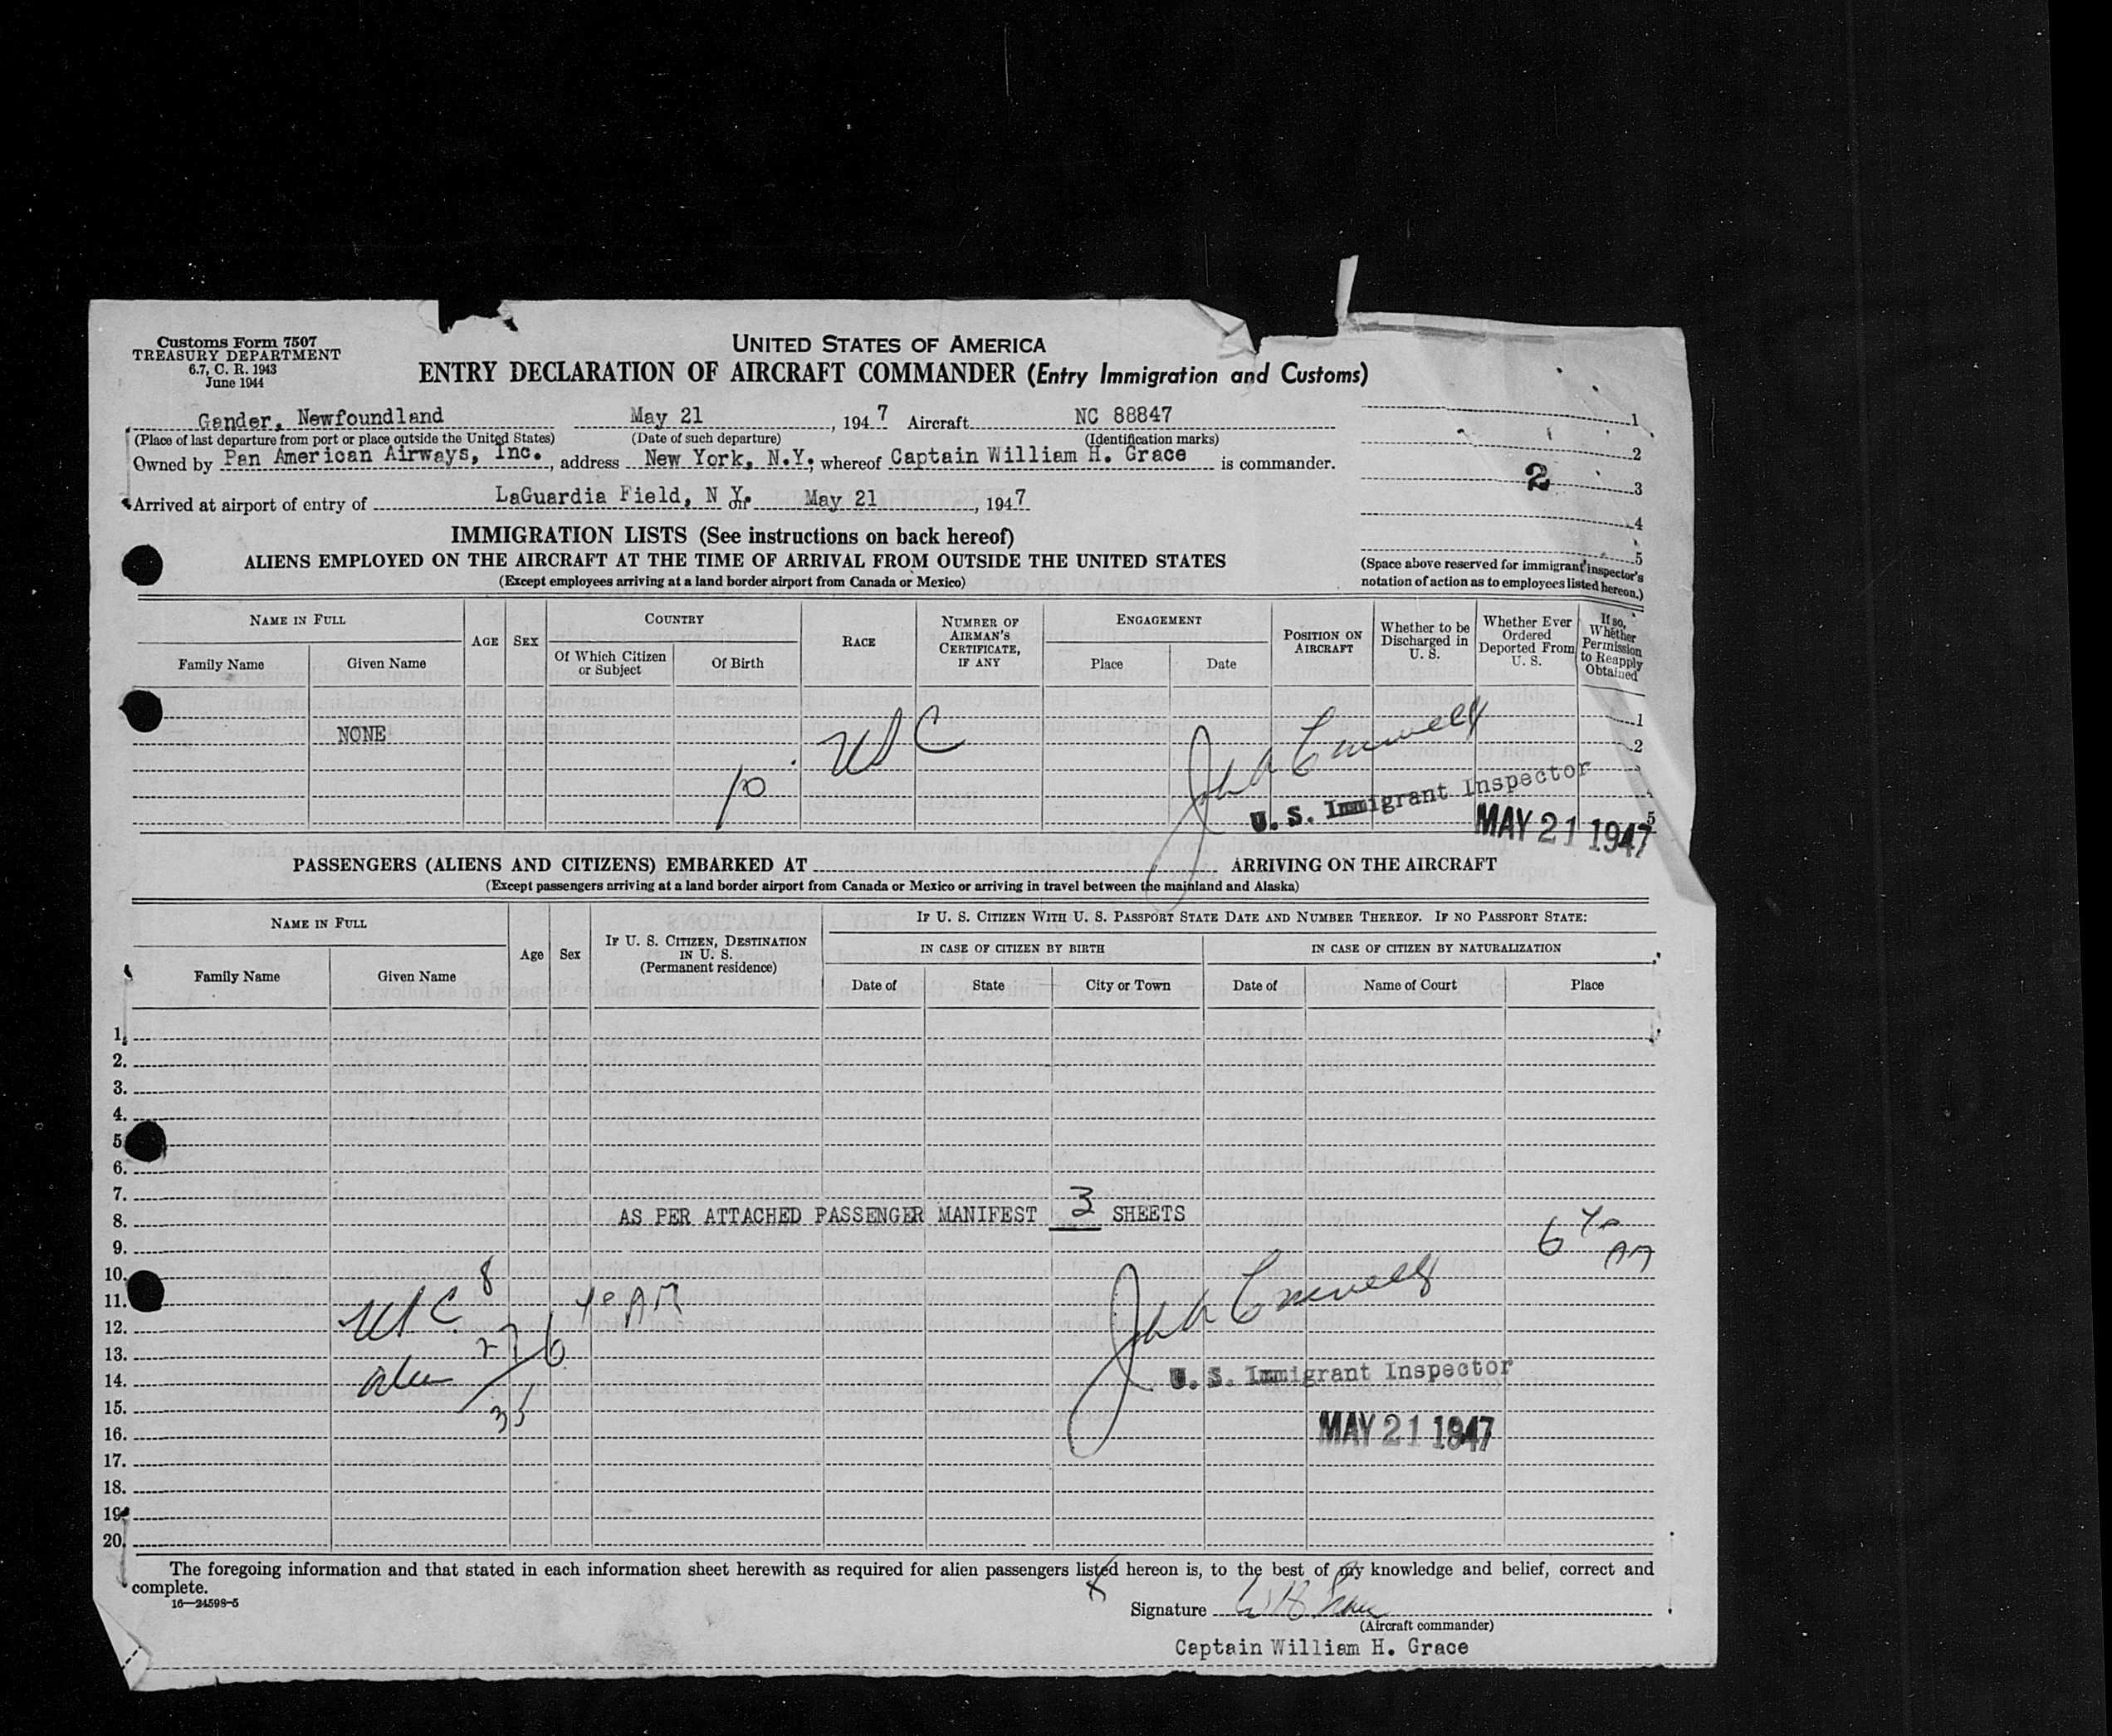 Customs Form 7507
TREASURY DEPARTMENT
6.7, C. R. 1943
June 1944
UNITED STATES OF AMERICA
ENTRY DECLARATION OF AIRCRAFT COMMANDER (Entry Immigration and Customs)
Gander, Newfoundland May 21, 1947 Aircraft NC 88847
(Place of last departure from port or place outside the United States) (Date of such departure) (Identification marks)
Owned by Pan American Airways, Inc., address New York, N.Y. whereof Captain William H. Grace is commander.
Arrived at airport of entry of LaGuardia Field, N Y. on May 21, 1947
1
2
2
3
4
5
(Space above reserved for immigrant inspector's
notation of action as to employees listed hereon.)
IMMIGRATION LISTS (See instructions on back hereof)
ALIENS EMPLOYED ON THE AIRCRAFT AT THE TIME OF ARRIVAL FROM OUTSIDE THE UNITED STATES
(Except employees arriving at a land border airport from Canada or Mexico)
NAME IN FULL
Family Name
Given Name
AGE
SEX
COUNTRY
Of Which Citizen
or Subject
Of Birth
RACE
NUMBER OF
AIRMAN'S
CERTIFICATE,
IF ANY
ENGAGEMENT
Place
Date
POSITION ON
AIRCRAFT
Whether to be
Discharged in
U. S.
Whether Ever
Ordered
Deported From
U. S.
If so,
Whether
Permission
to Reapply
Obtained
1
NONE
2
10 USC
5
U. S. Immigrant Inspector
MAY 21 1947
PASSENGERS (ALIENS AND CITIZENS) EMBARKED AT ARRIVING ON THE AIRCRAFT
(Except passengers arriving at a land border airport from Canada or Mexico or arriving in travel between the mainland and Alaska)
NAME IN FULL
Family Name
Given Name
Age
Sex
IF U. S. CITIZEN, DESTINATION
IN U. S.
(Permanent residence)
IF U. S. CITIZEN WITH U. S. PASSPORT STATE DATE AND NUMBER THEREOF. IF NO PASSPORT STATE:
IN CASE OF CITIZEN BY BIRTH
IN CASE OF CITIZEN BY NATURALIZATION
Date of
State
City or Town
Date of
Name of Court
Place
1.
2.
3.
4.
5
6.
7.
8. AS PER ATTACHED PASSENGER MANIFEST 3 SHEETS
9.
10.
11.
12. USC 8
13. 27
14.
15. 35
16.
17.
18.
19.
20.
U. S. Immigrant Inspector
MAY 21 1947
The foregoing information and that stated in each information sheet herewith as required for alien passengers listed hereon is, to the best of my knowledge and belief, correct and
complete.
16—24598-5
Signature
(Aircraft commander)
Captain William H. Grace